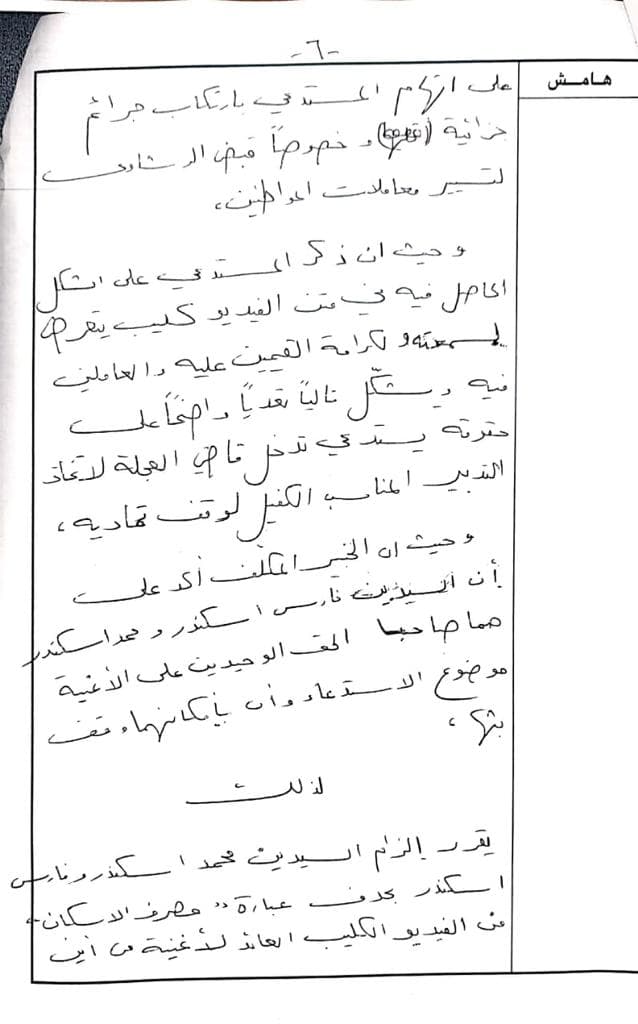 -٦-
هامش
على اتهام المستدعي بارتكاب جرائم
جزائية و خصوصاً قبض الرشاوى
لتسيير معاملات المواطنين،
و حيث ان ذكر المستدعي على الشكل
الحاصل فيه في متن الفيديو كليب يتعرض
لسمعته و لكرامة القيمين عليه والعاملين
فيه ويشكّل تالياً تعدياً واضحاً على
حقوقه يستدعي تدخل قاضي العجلة لاتخاذ
التدبير المناسب الكفيل لوقف تماديه،
و حيث ان الخبير المكلف أكد على
أن السيدين فارس اسكندر و محمد اسكندر
هما صاحبا الحق الوحيدين على الأغنية
موضوع الاستدعاء وأن بإمكانهما وقف
بثها،
لذلك
يقرر إلزام السيدين محمد اسكندر و فارس
اسكندر بحذف عبارة "مصرف الاسكان"
من الفيديو الكليب العائد لأغنية من أين